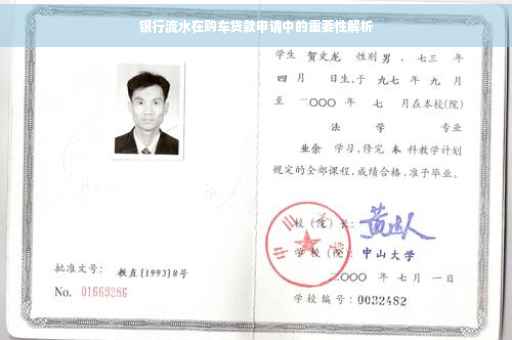 银行流水在购车贷款申请中的重要性解析
学生 贺文龙 性别 男 , 七三 年
四 月 日生,于 九七 年 九 月
至 二〇〇〇 年 七 月在本校(院)
法 学 专业
业余 学习,修完 本 科教学计划
规定的全部课程,成绩合格,准予毕业。
校 (院) 长:
学 校 (院): 中山大学
二〇〇〇 年 七 月 一 日
批准文号: 教直[1993]8号
No. 01669286
学校编号: 0032482